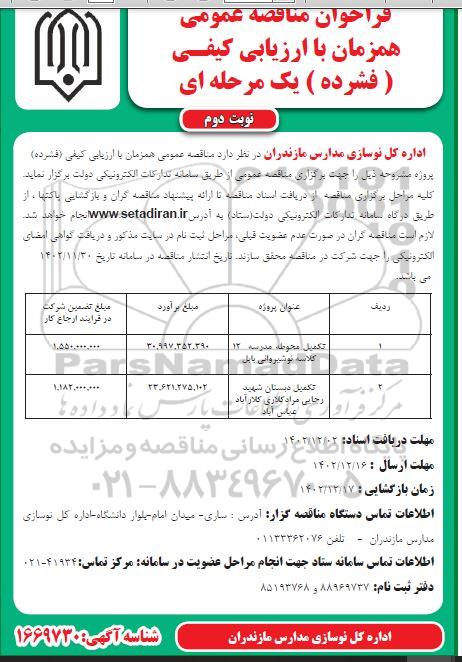 فراخوان مناقصه عمومی
همزمان با ارزیابی کیفی
( فشرده ) یک مرحله ای
نوبت دوم
اداره کل نوسازی مدارس مازندران در نظر دارد مناقصه عمومی همزمان با ارزیابی کیفی (فشرده)
پروژه مشروحه ذیل را جهت برگزاری مناقصه عمومی از طریق سامانه تدارکات الکترونیکی دولت برگزار نماید.
کلیه مراحل برگزاری مناقصه از دریافت اسناد مناقصه تا ارائه پیشنهاد مناقصه گران و بازگشایی پاکتها ، از
طریق درگاه سامانه تدارکات الکترونیکی دولت(ستاد) به آدرس www.setadiran.ir انجام خواهد شد.
لازم است مناقصه گران در صورت عدم عضویت قبلی، مراحل ثبت نام در سایت مذکور و دریافت گواهی امضای
الکترونیکی را جهت شرکت در مناقصه محقق سازند. تاریخ انتشار مناقصه در سامانه تاریخ ۱۴۰۲/۱۱/۳۰
می باشد.
ردیف عنوان پروژه مبلغ برآورد مبلغ تضمین شرکت
در فرایند ارجاع کار
۱ تکمیل محوطه مدرسه ۱۲ ۳۰,۹۹۷,۳۵۲,۳۹۰ ۱,۵۵۰,۰۰۰,۰۰۰
کلاسه نوشیروانی بابل
۲ تکمیل دبستان شهید ۲۳,۶۲۱,۲۷۵,۱۰۲ ۱,۱۸۲,۰۰۰,۰۰۰
رجایی مرادکلاری کلارآباد
عباس آباد
ParsNamadData
مرکز فرآوری اطلاعات پارس نماد داده ها
پایگاه اطلاع رسانی مناقصه و مزایده
۰۲۱-۸۸۳۴۹۶۷۰-۵
مهلت دریافت اسناد: ۱۴۰۲/۱۲/۰۲
مهلت ارسال : ۱۴۰۲/۱۲/۱۶
زمان بازگشایی : ۱۴۰۲/۱۲/۱۷
اطلاعات تماس دستگاه مناقصه گزار: آدرس : ساری- میدان امام-بلوار دانشگاه-اداره کل نوسازی
مدارس مازندران - تلفن ۰۱۱۳۳۳۶۲۰۷۶
اطلاعات تماس سامانه ستاد جهت انجام مراحل عضویت در سامانه: مرکز تماس: ۴۱۹۳۴-۰۲۱
دفتر ثبت نام: ۸۸۹۶۹۷۳۷ و ۸۵۱۹۳۷۶۸
اداره کل نوسازی مدارس مازندران
شناسه آگهی: ۱۶۶۹۷۳۰